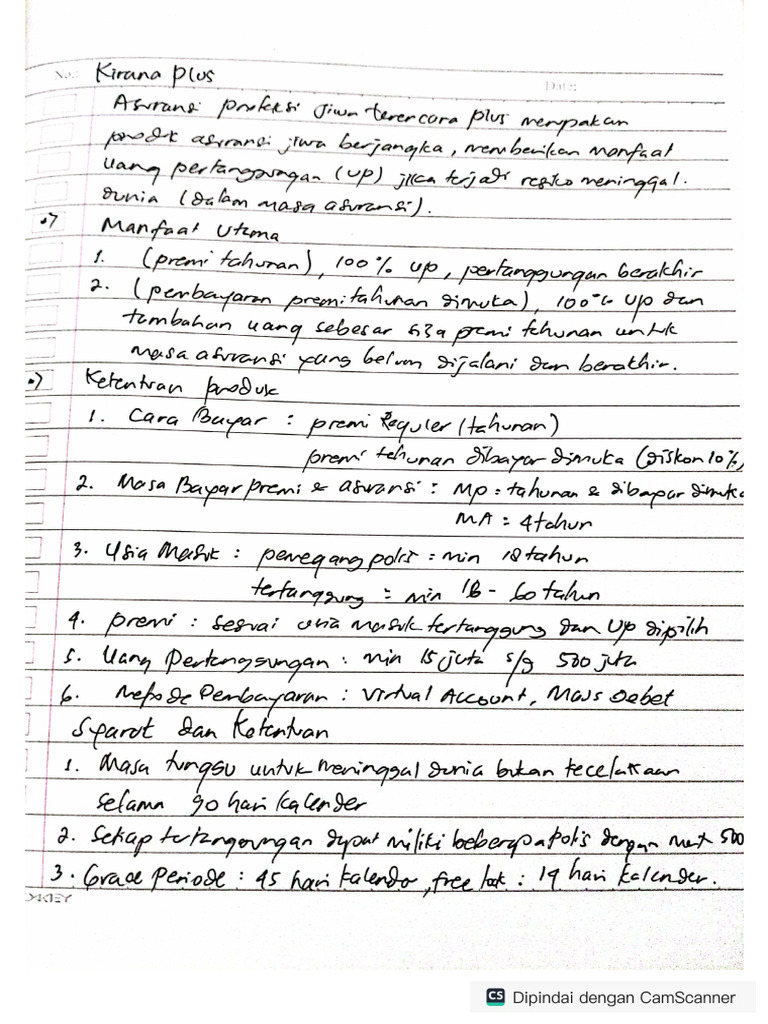 No.: Kirana Plus
Date:
Asuransi Proteksi Jiwa terencana plus merupakan
produk asuransi jiwa berjangka, memberikan manfaat
uang pertanggungan (UP) jika terjadi resiko meninggal.
dunia (dalam masa asuransi).
Manfaat Utama
1. (premi tahunan), 100% UP, pertanggungan berakhir
2. (pembayaran premi tahunan dimuka), 100% UP dan
tambahan uang sebesar sisa premi tahunan untuk
masa asuransi yang belum dijalani dan berakhir.
Ketentuan produk
1. Cara Bayar : premi Reguler (tahunan)
premi tahunan dibayar dimuka (diskon 10%)
2. Masa Bayar premi & asuransi : MP = tahunan & dibayar dimuka
MA = 4 tahun
3. Usia Masuk : pemegang polis = min 18 tahun
tertanggung = min 18 - 60 tahun
4. premi : sesuai usia masuk tertanggung dan UP dipilih
5. Uang Pertanggungan : min 15 juta s/g 500 juta
6. Metode Pembayaran : Virtual Account, Maus Debet
Syarat dan Ketentuan
1. Masa tunggu untuk meninggal dunia bukan kecelakaan
selama 90 hari kalender
2. Setiap tertanggungan dapat miliki beberapa polis dengan max 500
3. Grace Periode : 45 hari kalender, free look : 14 hari kalender.
KIEY
CS Dipindai dengan CamScanner